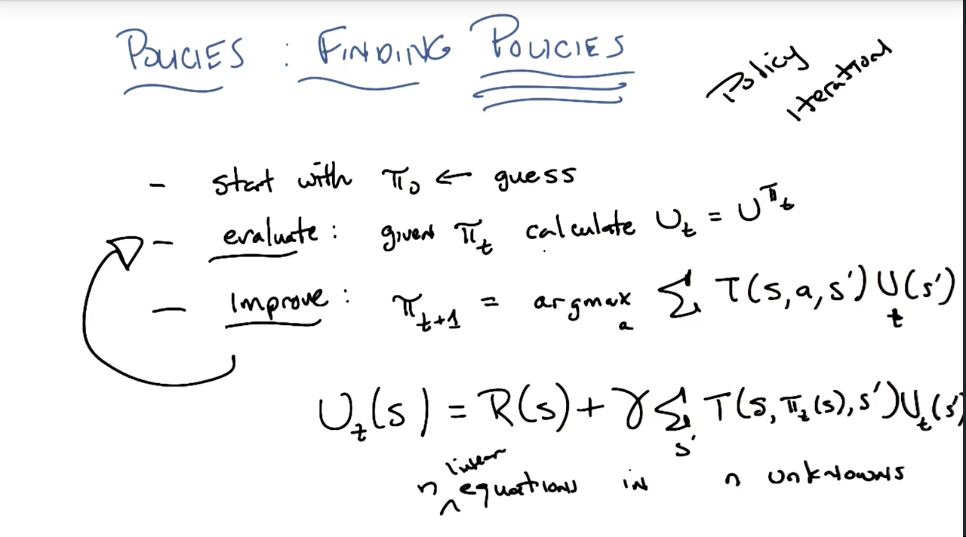 POLICIES : FINDING POLICIES
Policy
iteration
- start with π₀ ← guess
- evaluate : given π_t calculate U_t = U^π_t
- Improve : π_t+1 = argmax_a Σ T(s,a,s') U_t(s')
U_t(s) = R(s) + γ Σ_s' T(s, π_t(s), s') U_t(s')
n linear equations in n unknowns